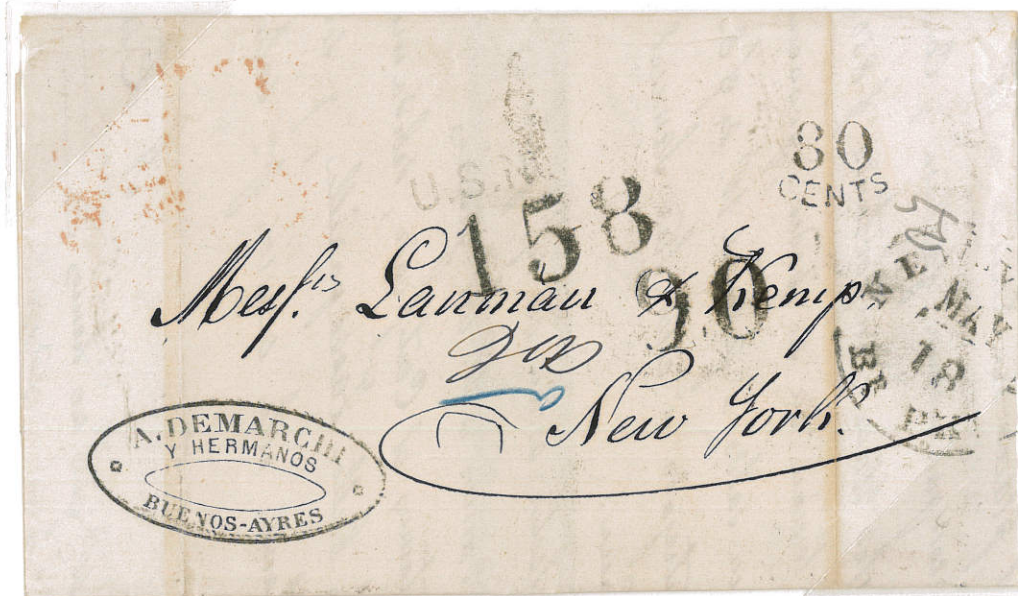 80
CENTS
U.S.
158
90
Messrs Lanman & Kemp.
New York.
NEW
MAY
18
A. DEMARCHI
Y HERMANOS
BUENOS-AYRES